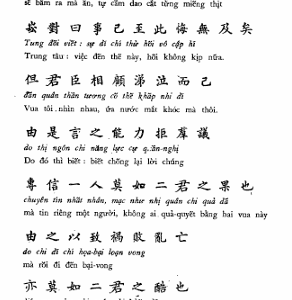 sẽ băm ra mà ăn, tự cầm dao cắt từng miếng thịt
崧對曰事已至此悔無及矣
Tung đối viết : sự dĩ chí thử hối vô cập hĩ
Trung tâu : việc đến thế này, hối không kịp nữa.
但君臣相顧涕泣而己
đãn quân thần tương cố thế khấp nhi dĩ
Vua tôi nhìn nhau, ứa nước mắt khóc mà thôi.
由是言之能力拒羣議
do thị ngôn chi năng lực cự quần-nghị
Do đó thì biết : biết chống lại lời chúng
專信一人莫如二君之果也
chuyên tín nhất nhân, mạc như nhị quân chi quả dã
mà tin riêng một người, không ai quả-quyết bằng hai vua này
由之以致禍敗亂亡
do chi dĩ chí họa-bại loạn vong
mà rồi đi đến bại-vong
亦莫如二君之酷也